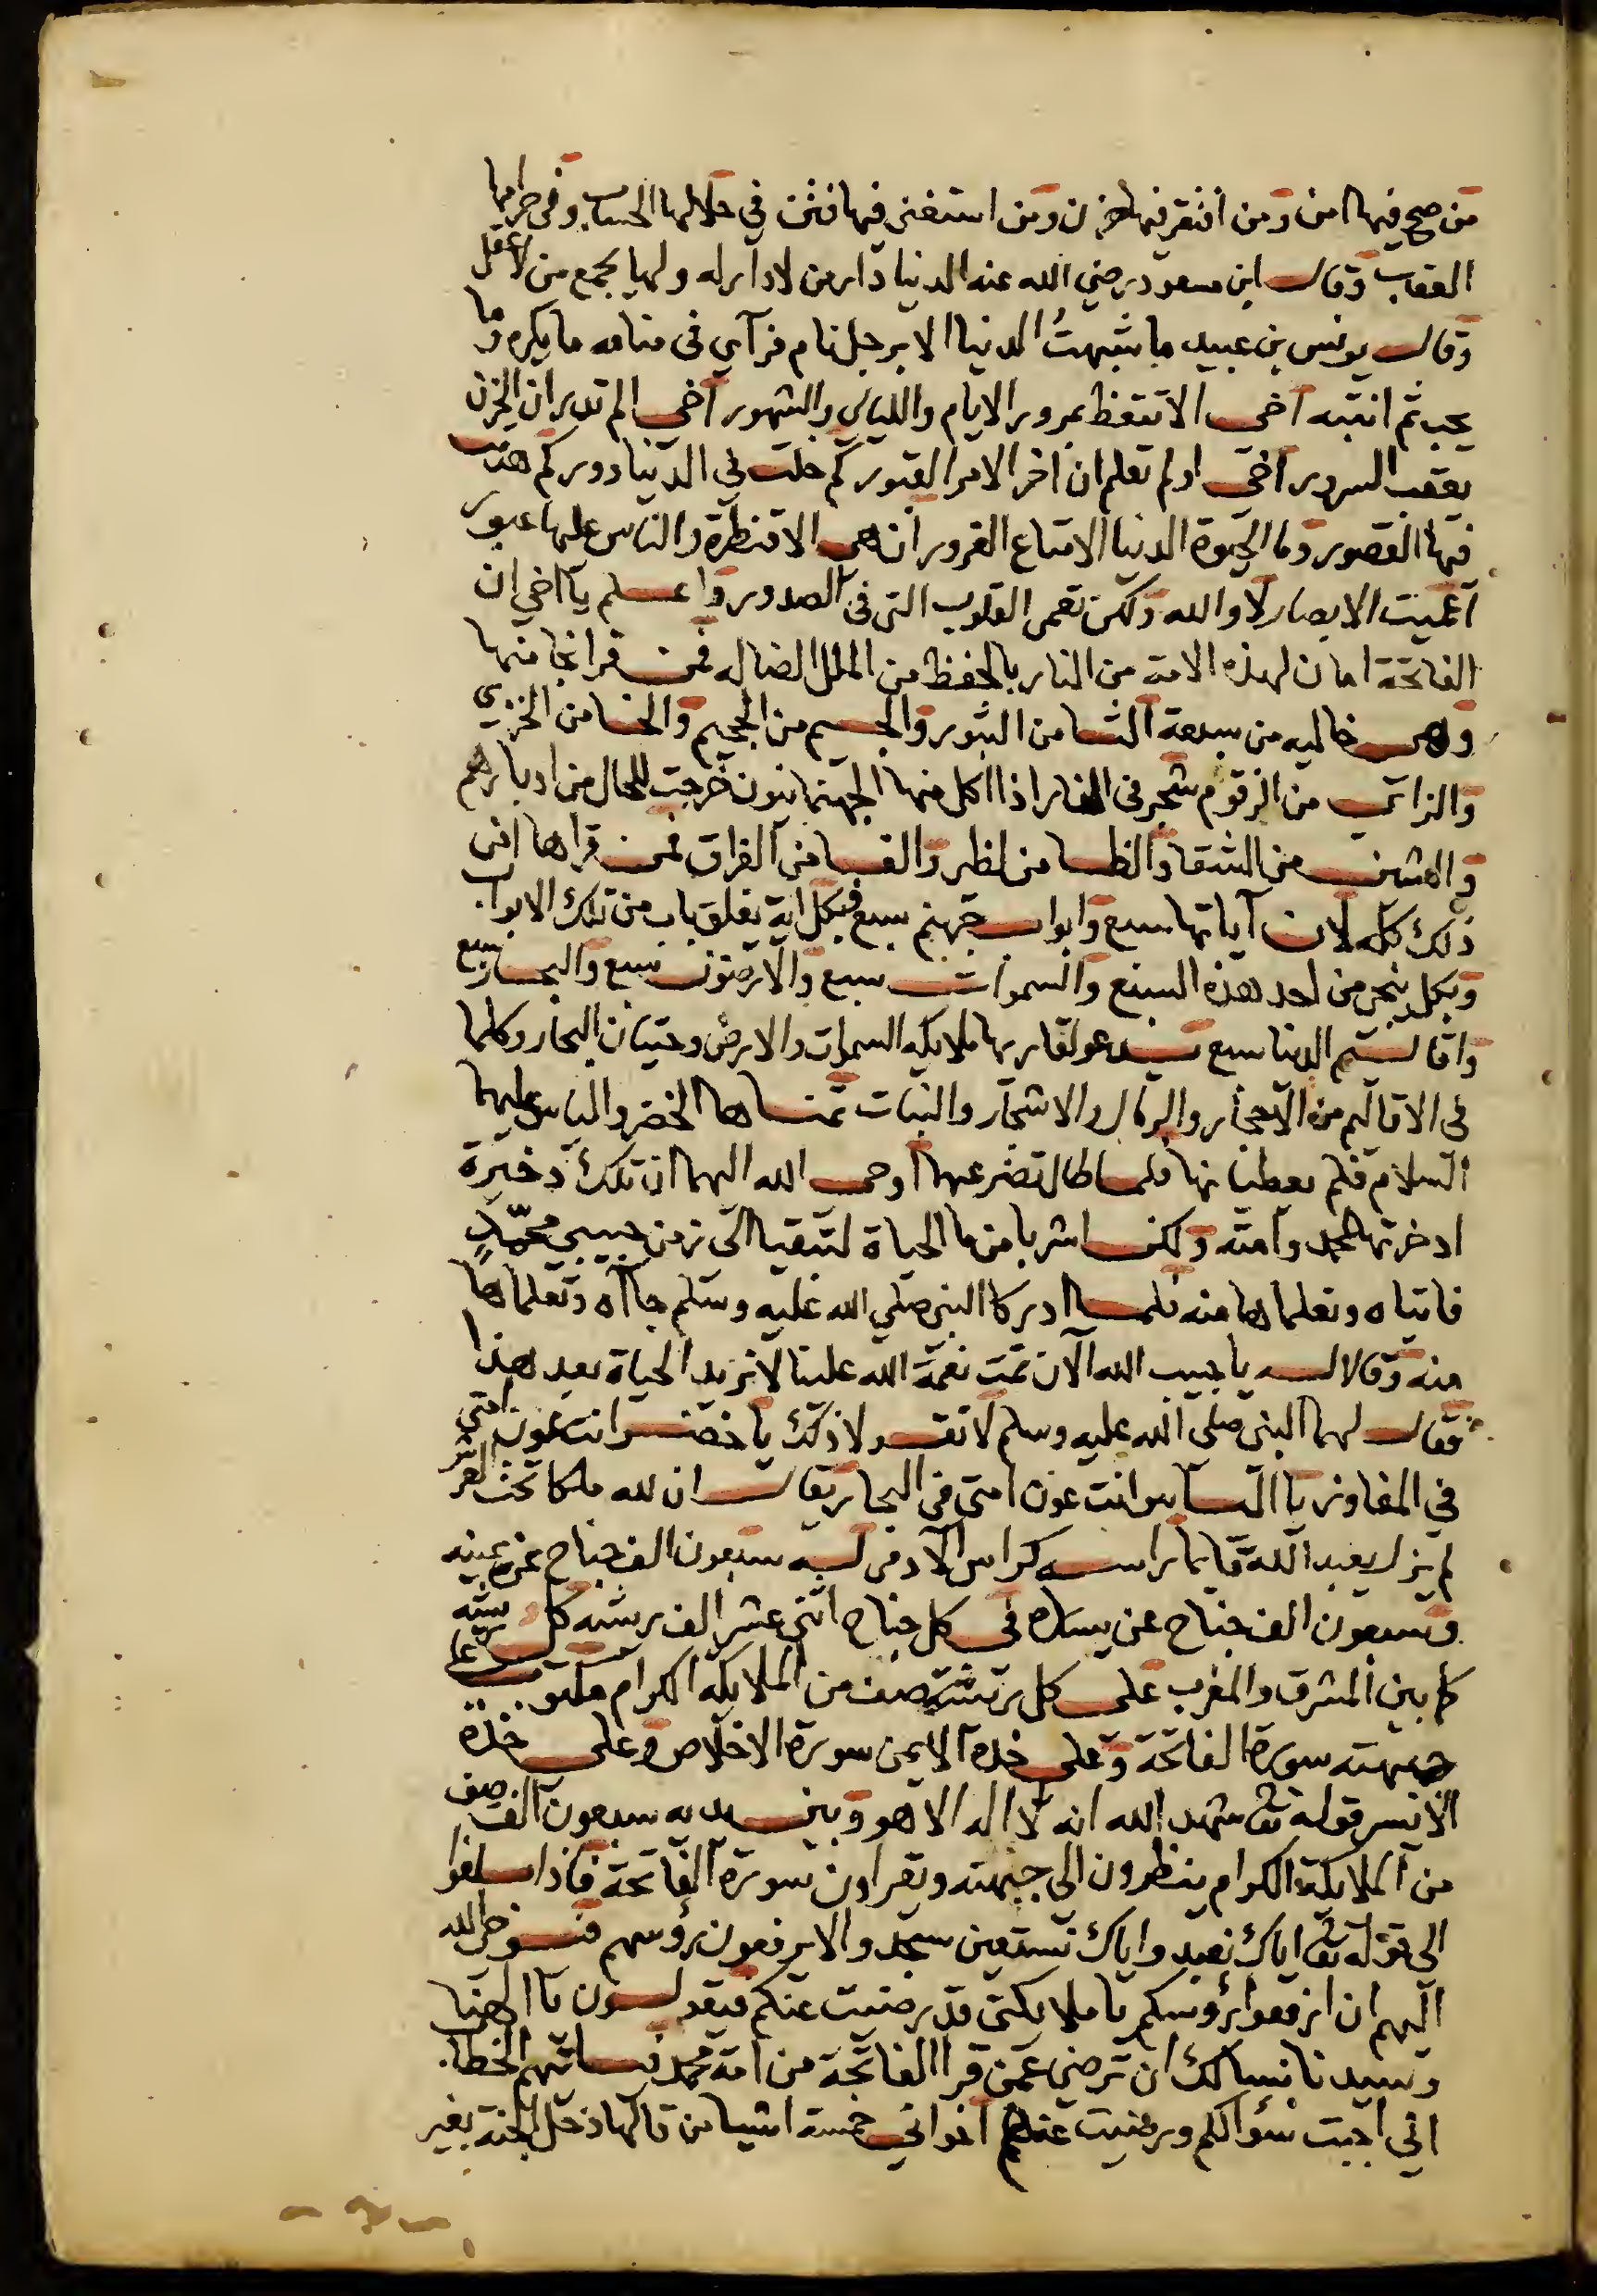 من صح فيها امن ومن افتقر فيها حزن ومن استغنى فيها فتن في حلالها الحساب وفى حرامها
العقاب وقال ابن مسعود رضي الله عنه الدنيا دار من لا دار له ولها يجمع من لا عقل
وقال يونس بن عبيد ما شبهتُ الدنيا الا برجل نام فرآي في منامه ما يكره وما
يحب ثم انتبه اخى الا تتعظ بمرور الايام والليالي والشهور اخى الم تدر ان الحزن
يعقب السرور اخي اولم تعلم ان اخر الامر القبور كم خلت في الدنيا دور كم هدمت
فيها القصور وما الحيوة الدنيا الا متاع الغرور ان هى الا قنطرة والناس عليها عبور
اعميت الابصار لا والله ولكن تعمى القلوب التى فى الصدور واعلم يا اخي ان
الفاتحة امان لهذه الامة من النار بالحفظ من الملل الضاله فمن قرا نجا منها
وهى خاليه من سبعة الثا من الثبور والجيم من الجحيم والخا من الخزي
والزاي من الزقوم شجر فى النار اذا اكل منها الجهنمايون خرجت للحال من ادبارهم
والشين من الشقا والظا من لظى والفا من الفراق فمن قراها امن
ذلك كله لان آياتها سبع وابواب جهنم سبع فبكل اية يغلق باب من تلك الابواب
وبكل ينجى من احد هذه السبع والسموات سبع والارضون سبع والبحار سبع
واقاليم الدنيا سبع سيدعو لقاريها ملايكه السموات والارض وحيتان البحار وكلما
فى الاقاليم من الاحجار والرمال والاشجار والنبات تمناها الخضر والياس عليهما
السلام فلم يعطيانها فلما طال تضرعهما اوحى الله اليهما ان تلك ذخيرة
ادخرتها لمحمد وامته ولكن اشربا من ما الحياة لتبقيا الى زمن حبيبي محمّدٍ
فاتياه وتعلماها منه فلما ادركا النبي صلي الله عليه وسلم جاآه وتعلماها
منه وقالا له يا حبيب الله الآن تمت نعمة الله علينا لا نريد الحياة بعد هذا
فقال لهما النبي صلى الله عليه وسلم لا تقولا ذلك يا خضر انت عون امتى
في المفاوز يا الياس وانت عون امتى فى البحار يقال ان لله ملكا تحت العرش
لم يزل يعبد الله قايما راسه كراس الادمى له سبعون الف جناح عن يمينه
وسبعون الف جناح عن يساره فى كل جناح اثنى عشر الف ريشه كل ريشه
كما بين المشرق والمغرب على كل ريشة صف من الملايكه الكرام مكتوب على
جبهته سورة الفاتحة وعلى خده الايمن سورة الاخلاص وعلى خده
الايسر قوله تعا شهد الله انه لا اله الا هو وبين يديه سبعون الف صف
من الملايكة الكرام ينظرون الي جبهته ويقراون سورة الفاتحة فاذا بلغوا
الى قوله تعا اياك نعبد واياك نستعين سجدوا لا يرفعون رؤسهم فيوحي الله
اليهم ان ارفعوا رؤسكم يا ملايكتى قد رضيت عنكم فيقولون يا الهنا
وسيدنا نسالك ان ترضي عمن قرا الفاتحة من امة محمد فياتيهم الخطاب
اني اجبت سؤالكم ورضيت عنهم اخواني خمسة اشيا من قالها دخل الجنة بغير